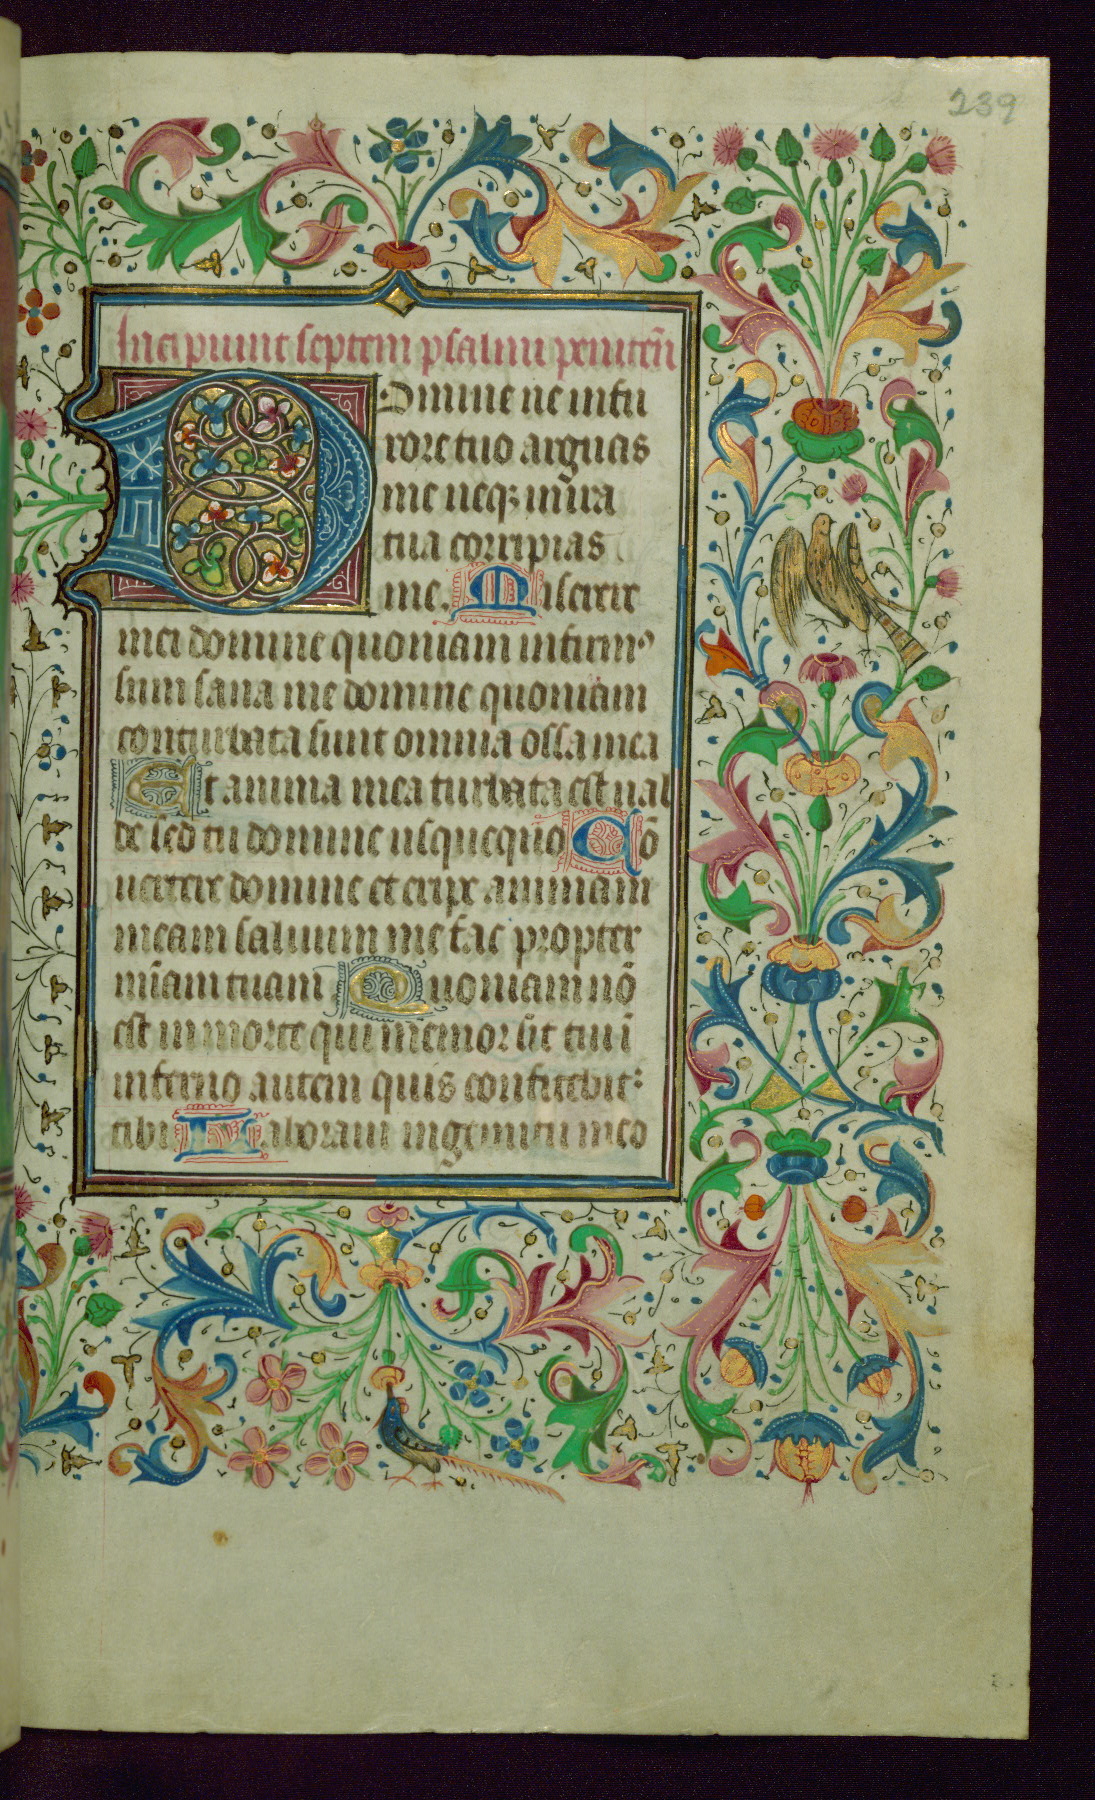 239
Incipiunt septem psalmi peniten̄
Domine ne in fu
rore tuo arguas
me neqꝫ in ira
tua corripias
me. Miserere
mei domine quoniam infirmꝰ
sum sana me domine quoniam
conturbata sunt omnia ossa mea
Et anima mea turbata est ual
de sed tu domine usquequo Cō
uertere domine et eripe animam
meam saluum me fac propter
mīam tuam Quoniam nō
est in morte qui memor sit tui ī
inferno autem quis confitebit᷑
tibi Laboraui in gemitu meo